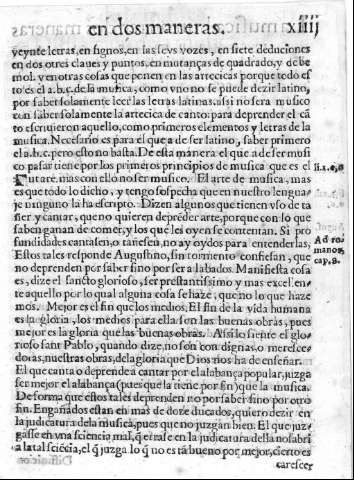 en dos maneras. xiiij
veynte letras, en signos, en las seys vozes, en siete deduciones
en dos otres claues y puntos, en mutanças de quadrado, y de be
mol. y en otras cosas que ponen en las artezicas porque todo es
to es el a.b.c. de la musica, como vno no se puede dezir latino,
por saber solamente leer las letras latinas. assi no sera musico
con saber solamente la artezica de canto: para deprender el cã
to escriuieron aquello, como primeros elementos y letras de la
musica. Necesario es para el que a de ser latino, saber primero
el a.b.c. pero esto no basta. De esta manera el que a de ser musi
co pasar tiene por los primeros principios de musica que es el
mas con ello no ser musico. El arte de musica, mas
es que todo lo dicho, y tengo sospecha que en nuestro lengua
je ninguno la ha escripto. Dizen algunos que tienen vso de ta
ñer y cantar, que no quieren depréder arte, porque con lo que
saben ganan de comer, y los que les oyen se contentan. Si pro
fundidades cantasen, o tañesen, no ay oydos para entenderlas.
Estos tales responde Augustino, sin tormento confiesan, que
no deprenden por saber sino por ser alabados. Manifiesta cosa
es, dize el sancto glorioso, ser prestantissimo y mas excelen
te aquello por lo qual alguna cosa se haze, que no lo que haze
mos. Mejor es el fin que los medios. El fin de la vida humana
es la gloria, los medios para ella son las buenas obras, pues
mejor es la gloria que las buenas obras. Assi lo siente el glo
rioso sant Pablo, quando dize, no són con dignas, o merece
doras, nuestras obras, dela gloria que Dios nos ha de enseñar.
El que canta o deprende a cantar por el alabança popular, juzga
ser mejor el alabança (pues que la tiene por fin) que la musica.
De forma que éstos tales deprenden no por saber sino por otro
fin. Engañados estan en mas de doze ducados, quiero dezir en
la judicatura dela musica, pues que no juzgan bien. El que juz
gasse en vna sciencia mal, q̃ errase en la judicatura della no sabri
a la tal sciēcia, el q̃ juzga lo q̃ no es tã bueno por mejor, cierto es
carescer
Ad ro
manos,
cap. 8.